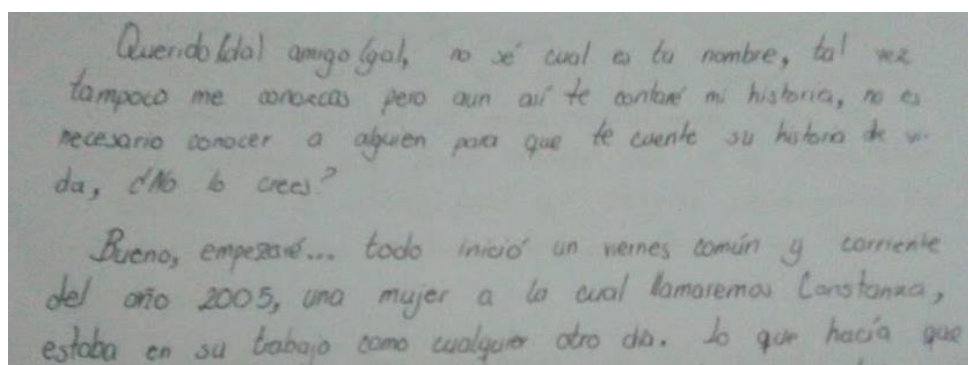 Querido(da) amigo(ga), no sé cual es tu nombre, tal vez
tampoco me conozcas pero aun así te contaré mi historia, no es
necesario conocer a alguien para que te cuente su historia de vi-
da, ¿No lo crees?
Bueno, empezaré... todo inició un viernes común y corriente
del año 2005, una mujer a la cual llamaremos Constanza,
estaba en su trabajo como cualquier otro día. Lo que hacía que